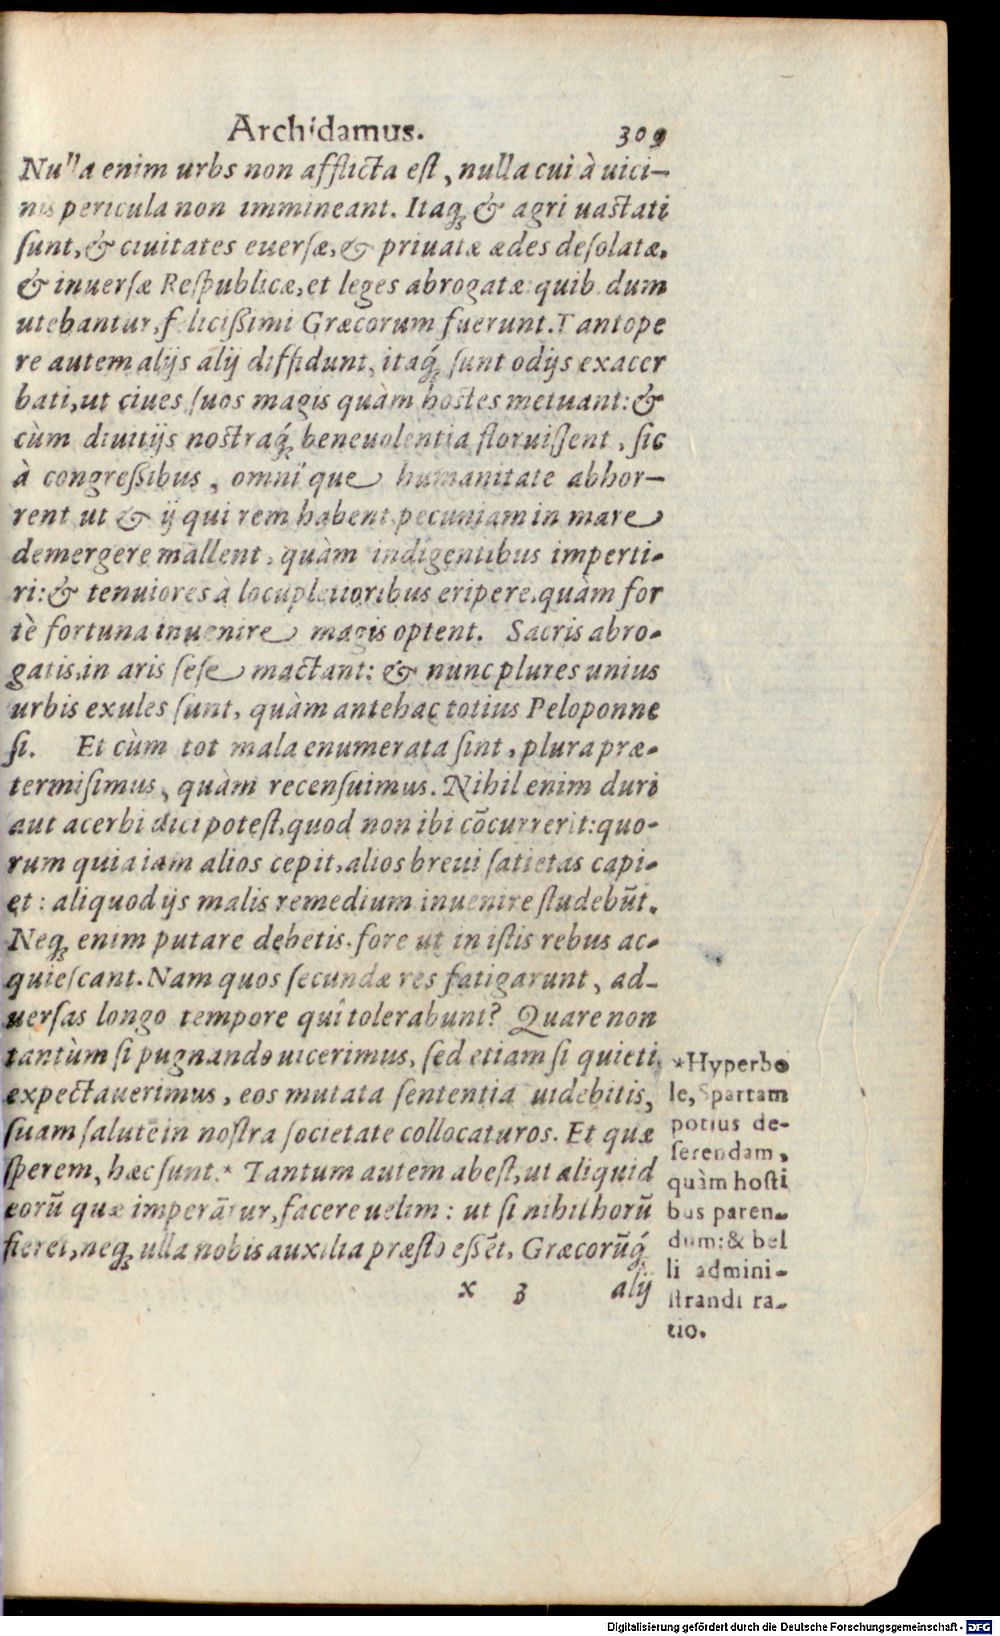 Archidamus. 309
Nulla enim urbs non afflicta eſt, nulla cui à uici-
nis pericula non immineant. Itaq́; & agri uastati
ſunt, & ciuitates euerſæ, & priuatæ ædes deſolatæ,
& inuerſæ Reſpublicæ, et leges abrogatæ: quib. dum
utebantur, felicißimi Græcorum fuerunt. Tantope
re autem alijs alij diffidunt, itaq́; ſunt odijs exacer
bati, ut ciues ſuos magis quàm hostes metuant: &
cùm diuitijs nostraq́; beneuolentia floruiſſent, ſic
à congreßibus, omnique humanitate abhor-
rent ut & ij qui rem habent, pecuniam in mare
demergere mallent, quàm indigentibus imperti-
ri: & tenuiores à locupletioribus eripere, quàm for
tè fortuna inuenire magis optent. Sacris abro-
gatis, in aris ſeſe mactant: & nunc plures unius
urbis exules ſunt, quàm antehac totius Peloponne
ſi. Et cùm tot mala enumerata ſint, plura præ-
termiſimus, quàm recenſuimus. Nihil enim duri
aut acerbi dici poteſt, quod non ibi cõcurrerit: quo-
rum quia iam alios cepit, alios breui ſatietas capi-
et: aliquod ijs malis remedium inuenire ſtudebũt.
Neq; enim putare debetis, fore ut in iſtis rebus ac-
quieſcant. Nam quos ſecundæ res fatigarunt, ad-
uerſas longo tempore quî tolerabunt? Quare non
tantùm ſi pugnando uicerimus, ſed etiam ſi quieti
expectauerimus, eos mutata ſententia uidebitis,
ſuam ſalutē in noſtra ſocietate collocaturos. Et quæ
ſperem, hæc ſunt.* Tantum autem abeſt, ut aliquid
eorũ quæ imperãtur, facere uelim: ut ſi nihil horũ
fieret, neq; ulla nobis auxilia præſto eſſēt, Græcorũq́;
x 3 alij
*Hyperbo
le, Spartam
potius de-
ſerendam,
quàm hoſti
bus paren-
dum: & bel
li admini-
ſtrandi ra-
tio.
Digitalisierung gefördert durch die Deutsche Forschungsgemeinschaft - DFG